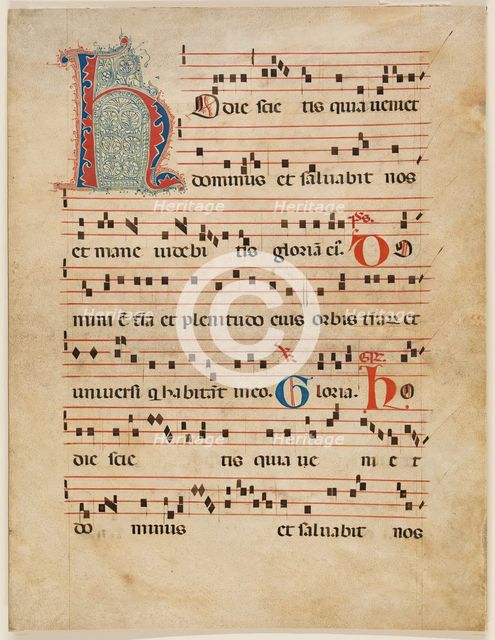 HO die scie tis quia veniet
dominus et salvabit nos
et mane videbi tis gloriā ei. ps. DO
mini ē t̄ra et plenitudo eius orbis t̄raɼ et
universi q habitāt in eo. V Gloria. HO
die scie tis quia ve ni e t
do minus et salvabit nos
Heritage
Heritage
Heritage
Heritage
Heritage
Heritage